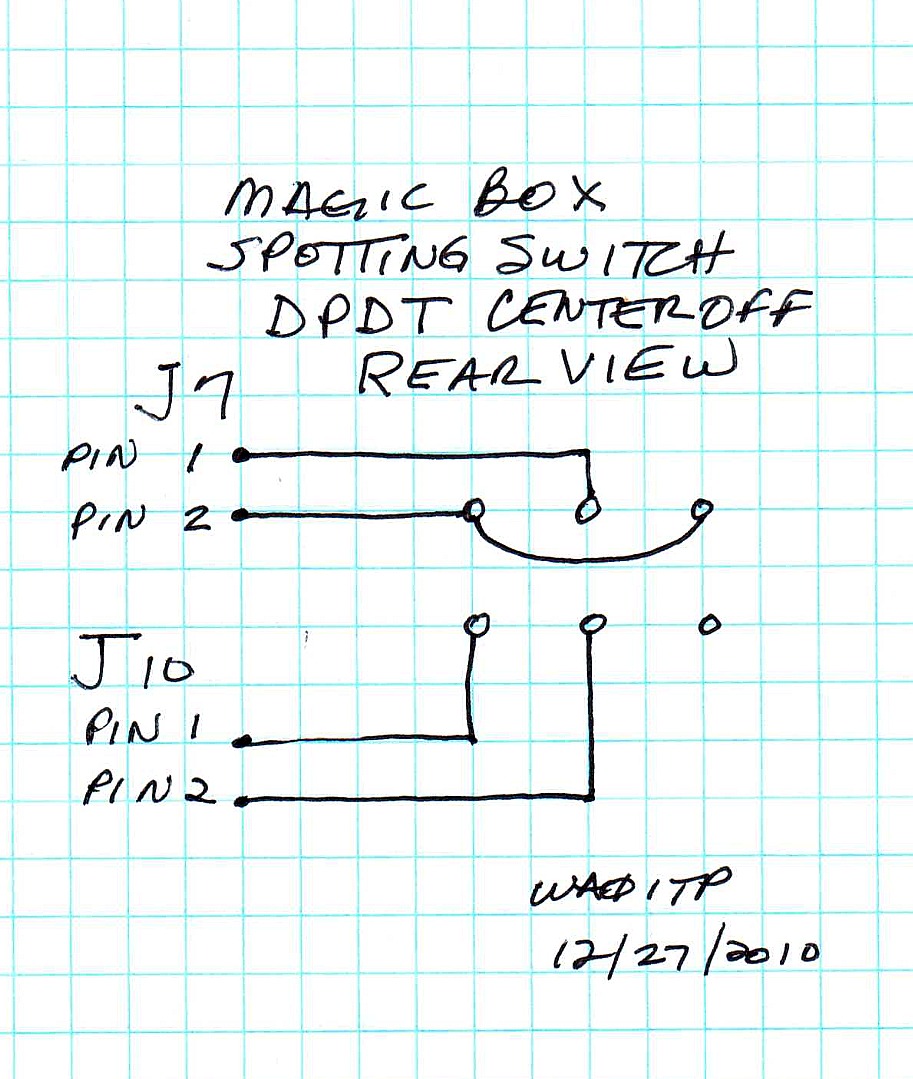 MAGIC BOX
SPOTTING SWITCH
DPDT CENTER OFF
REAR VIEW
J7
PIN 1
PIN 2
J10
PIN 1
PIN 2
WAØITP
12/27/2010